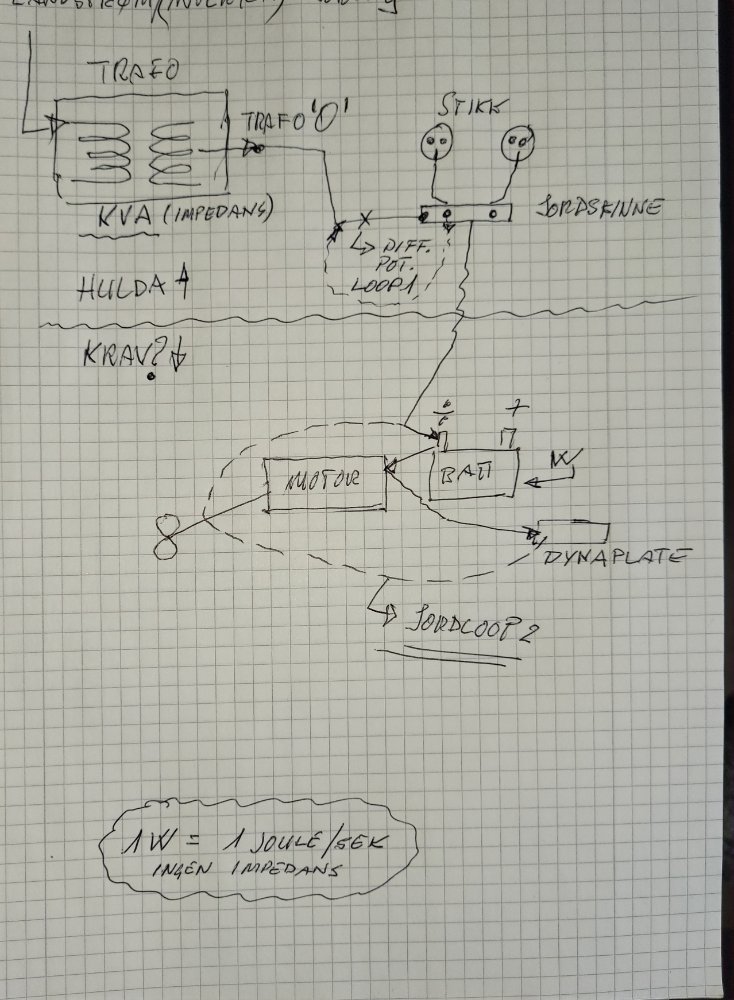 TRAFO
TRAFO 'O'
STIKK
KVA (IMPEDANS)
JORDSKINNE
DIFF.
POT.
LOOP1
HULDA
KRAV?
+
MOTOR
BATT
W
DYNAPLATE
JORDLOOP 2
1W = 1 JOULE/SEK
INGEN IMPEDANS